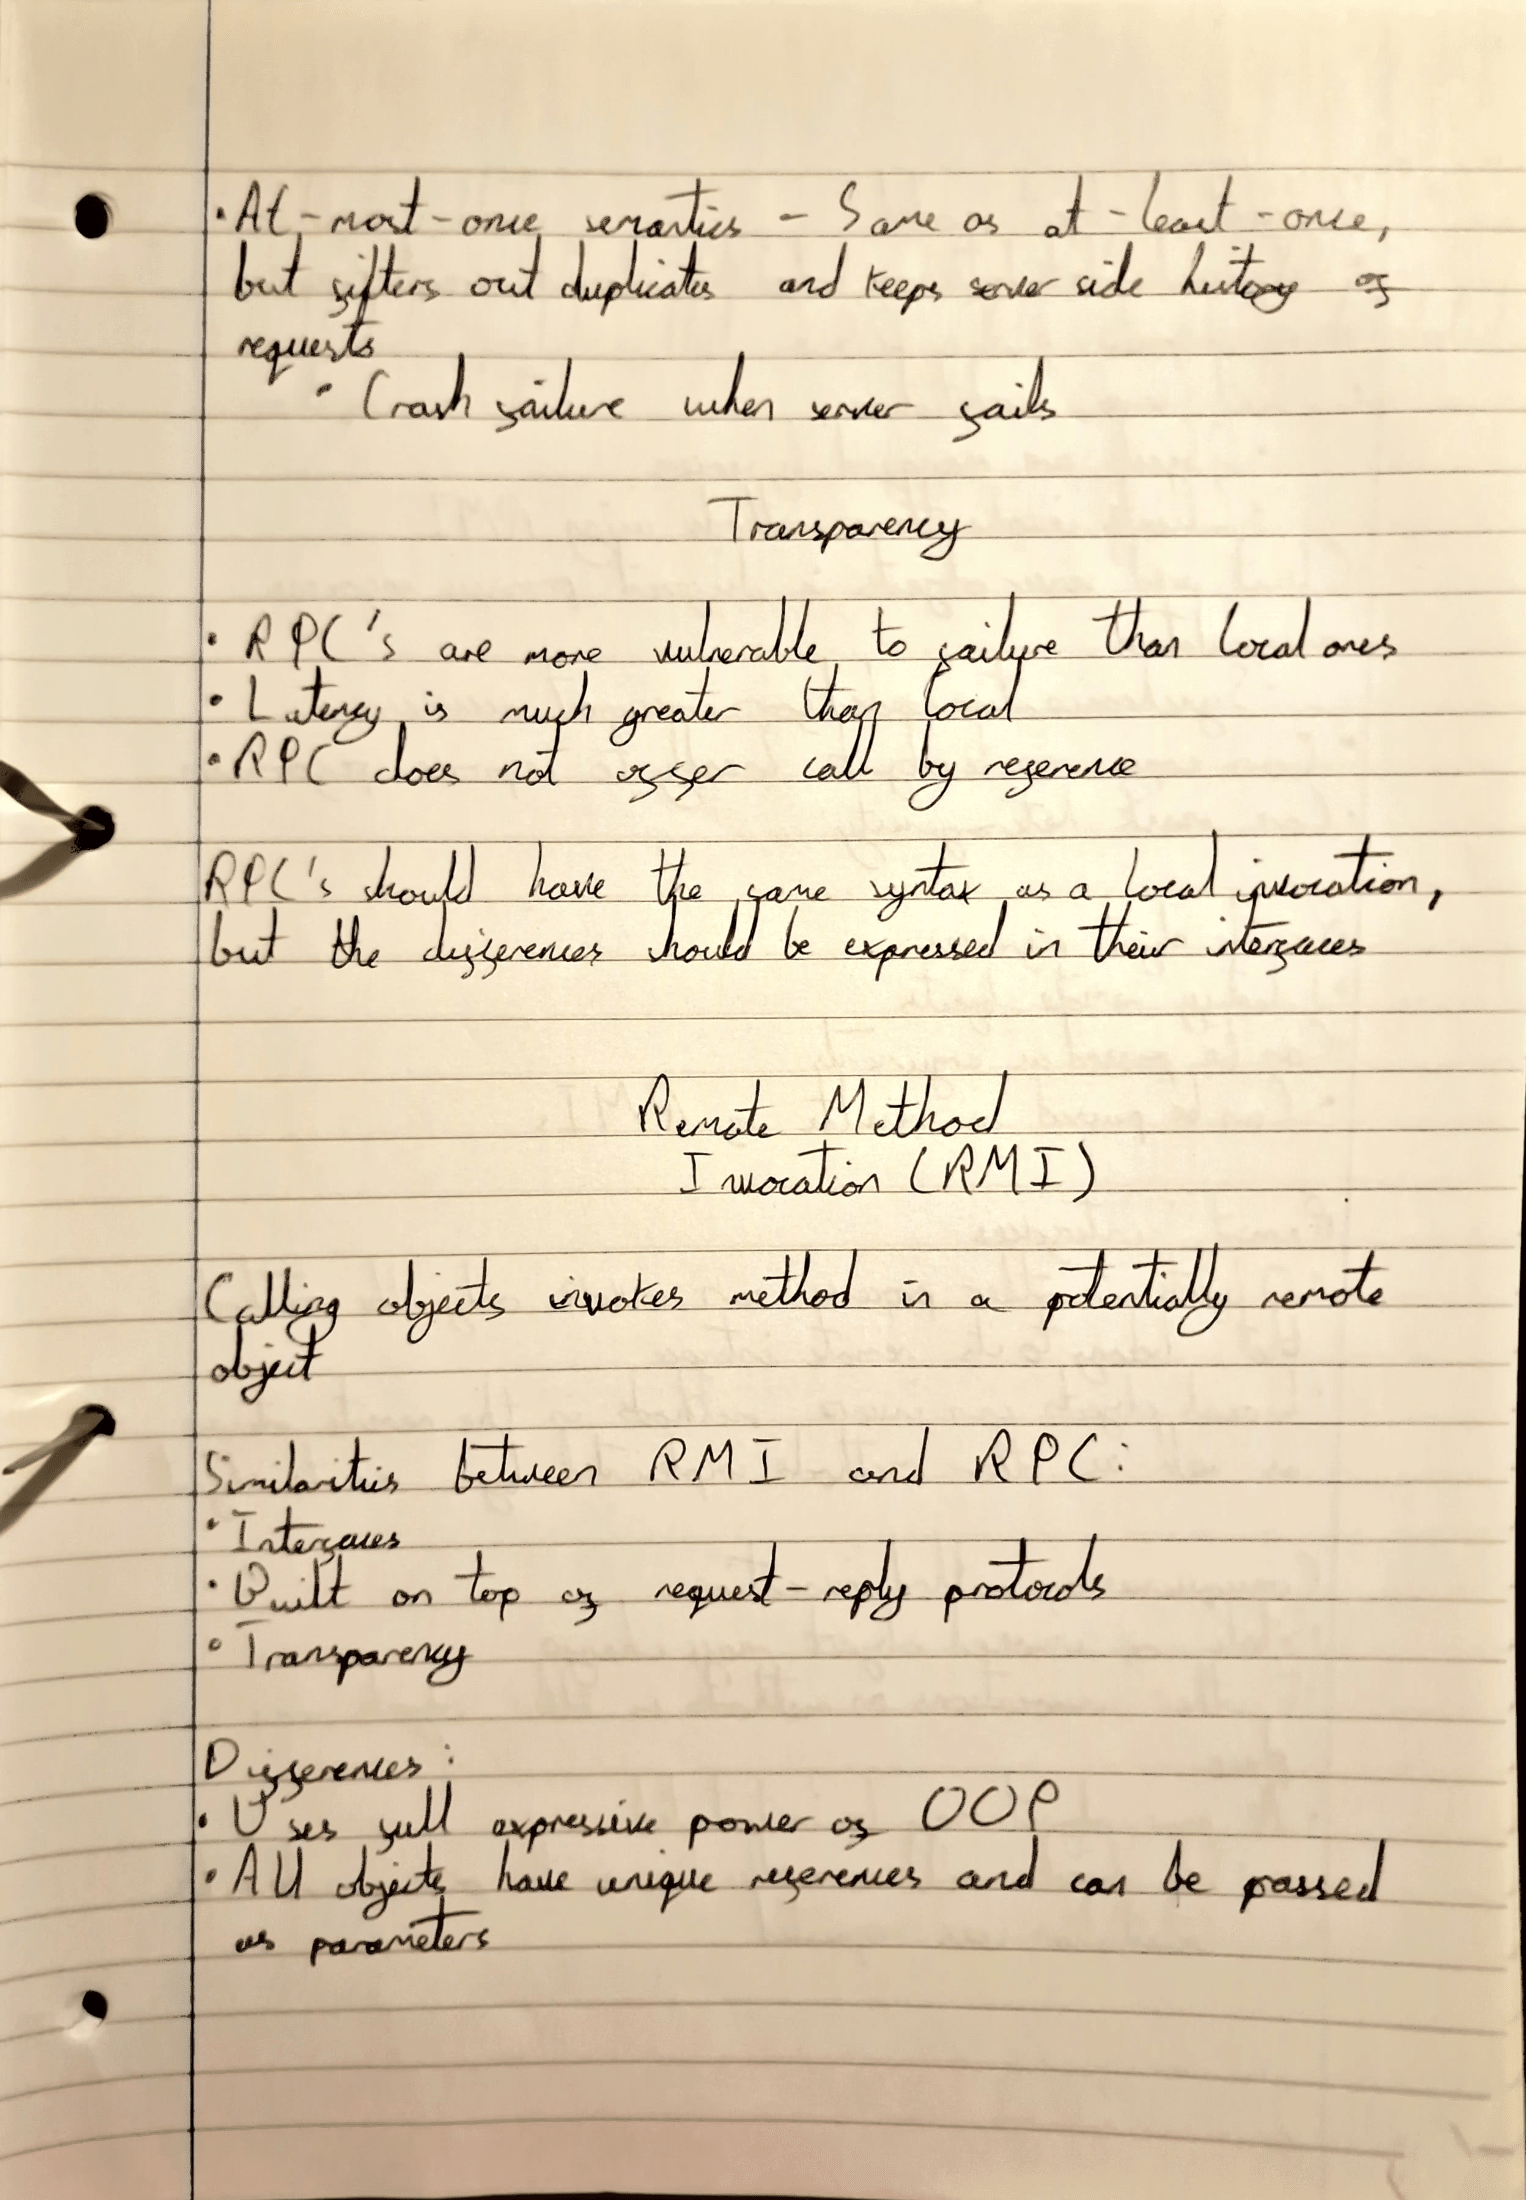 • At-most-once semantics - Same as at-least-once,
but filters out duplicates and keeps server side history of
requests
• Crash failure when server fails
Transparency
• RPC's are more vulnerable to failure than local ones
• Latency is much greater than local
• RPC does not offer call by reference
RPC's should have the same syntax as a local invocation,
but the differences should be expressed in their interfaces
Remote Method
Invocation (RMI)
Calling objects invokes method in a potentially remote
object
Similarities between RMI and RPC:
• Interfaces
• Built on top of request-reply protocols
• Transparency
Differences:
• Uses full expressive power of OOP
• All objects have unique references and can be passed
as parameters